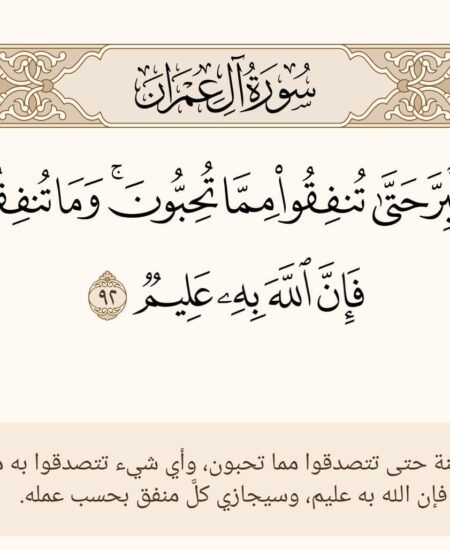 سُورَةُ آلِ عِمْرَانَ
حَتَّىٰ تُنفِقُوا۟ مِمَّا تُحِبُّونَ ۚ وَمَا
فَإِنَّ ٱللَّهَ بِهِۦ عَلِيمٌۭ ٩٢
حتى تتصدقوا مما تحبون، وأي شيء تتصدقوا به
فإن الله به عليم، وسيجازي كلَّ منفق بحسب عمله.